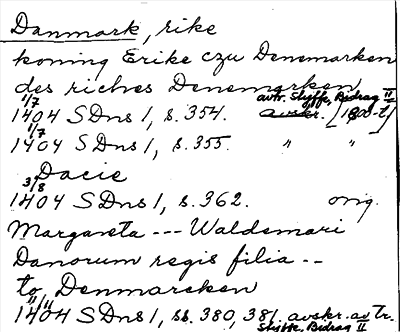 Danmark, rike
koning Erike czu Denemarken
des riches Denemarken
avtr. Styffe, Bidrag II
1/7
1404 SDns 1, s. 354. avskr. [1800-t]
1/7
1404 SDns 1, s. 355. " "
Dacie
3/8
1404 SDns 1, s. 362. orig.
Margareta --- Waldemari
Danorum regis filia --
to Denmarcken
11/11
1404 SDns 1, ss. 380, 381. avskr. avtr.
Styffe, Bidrag II